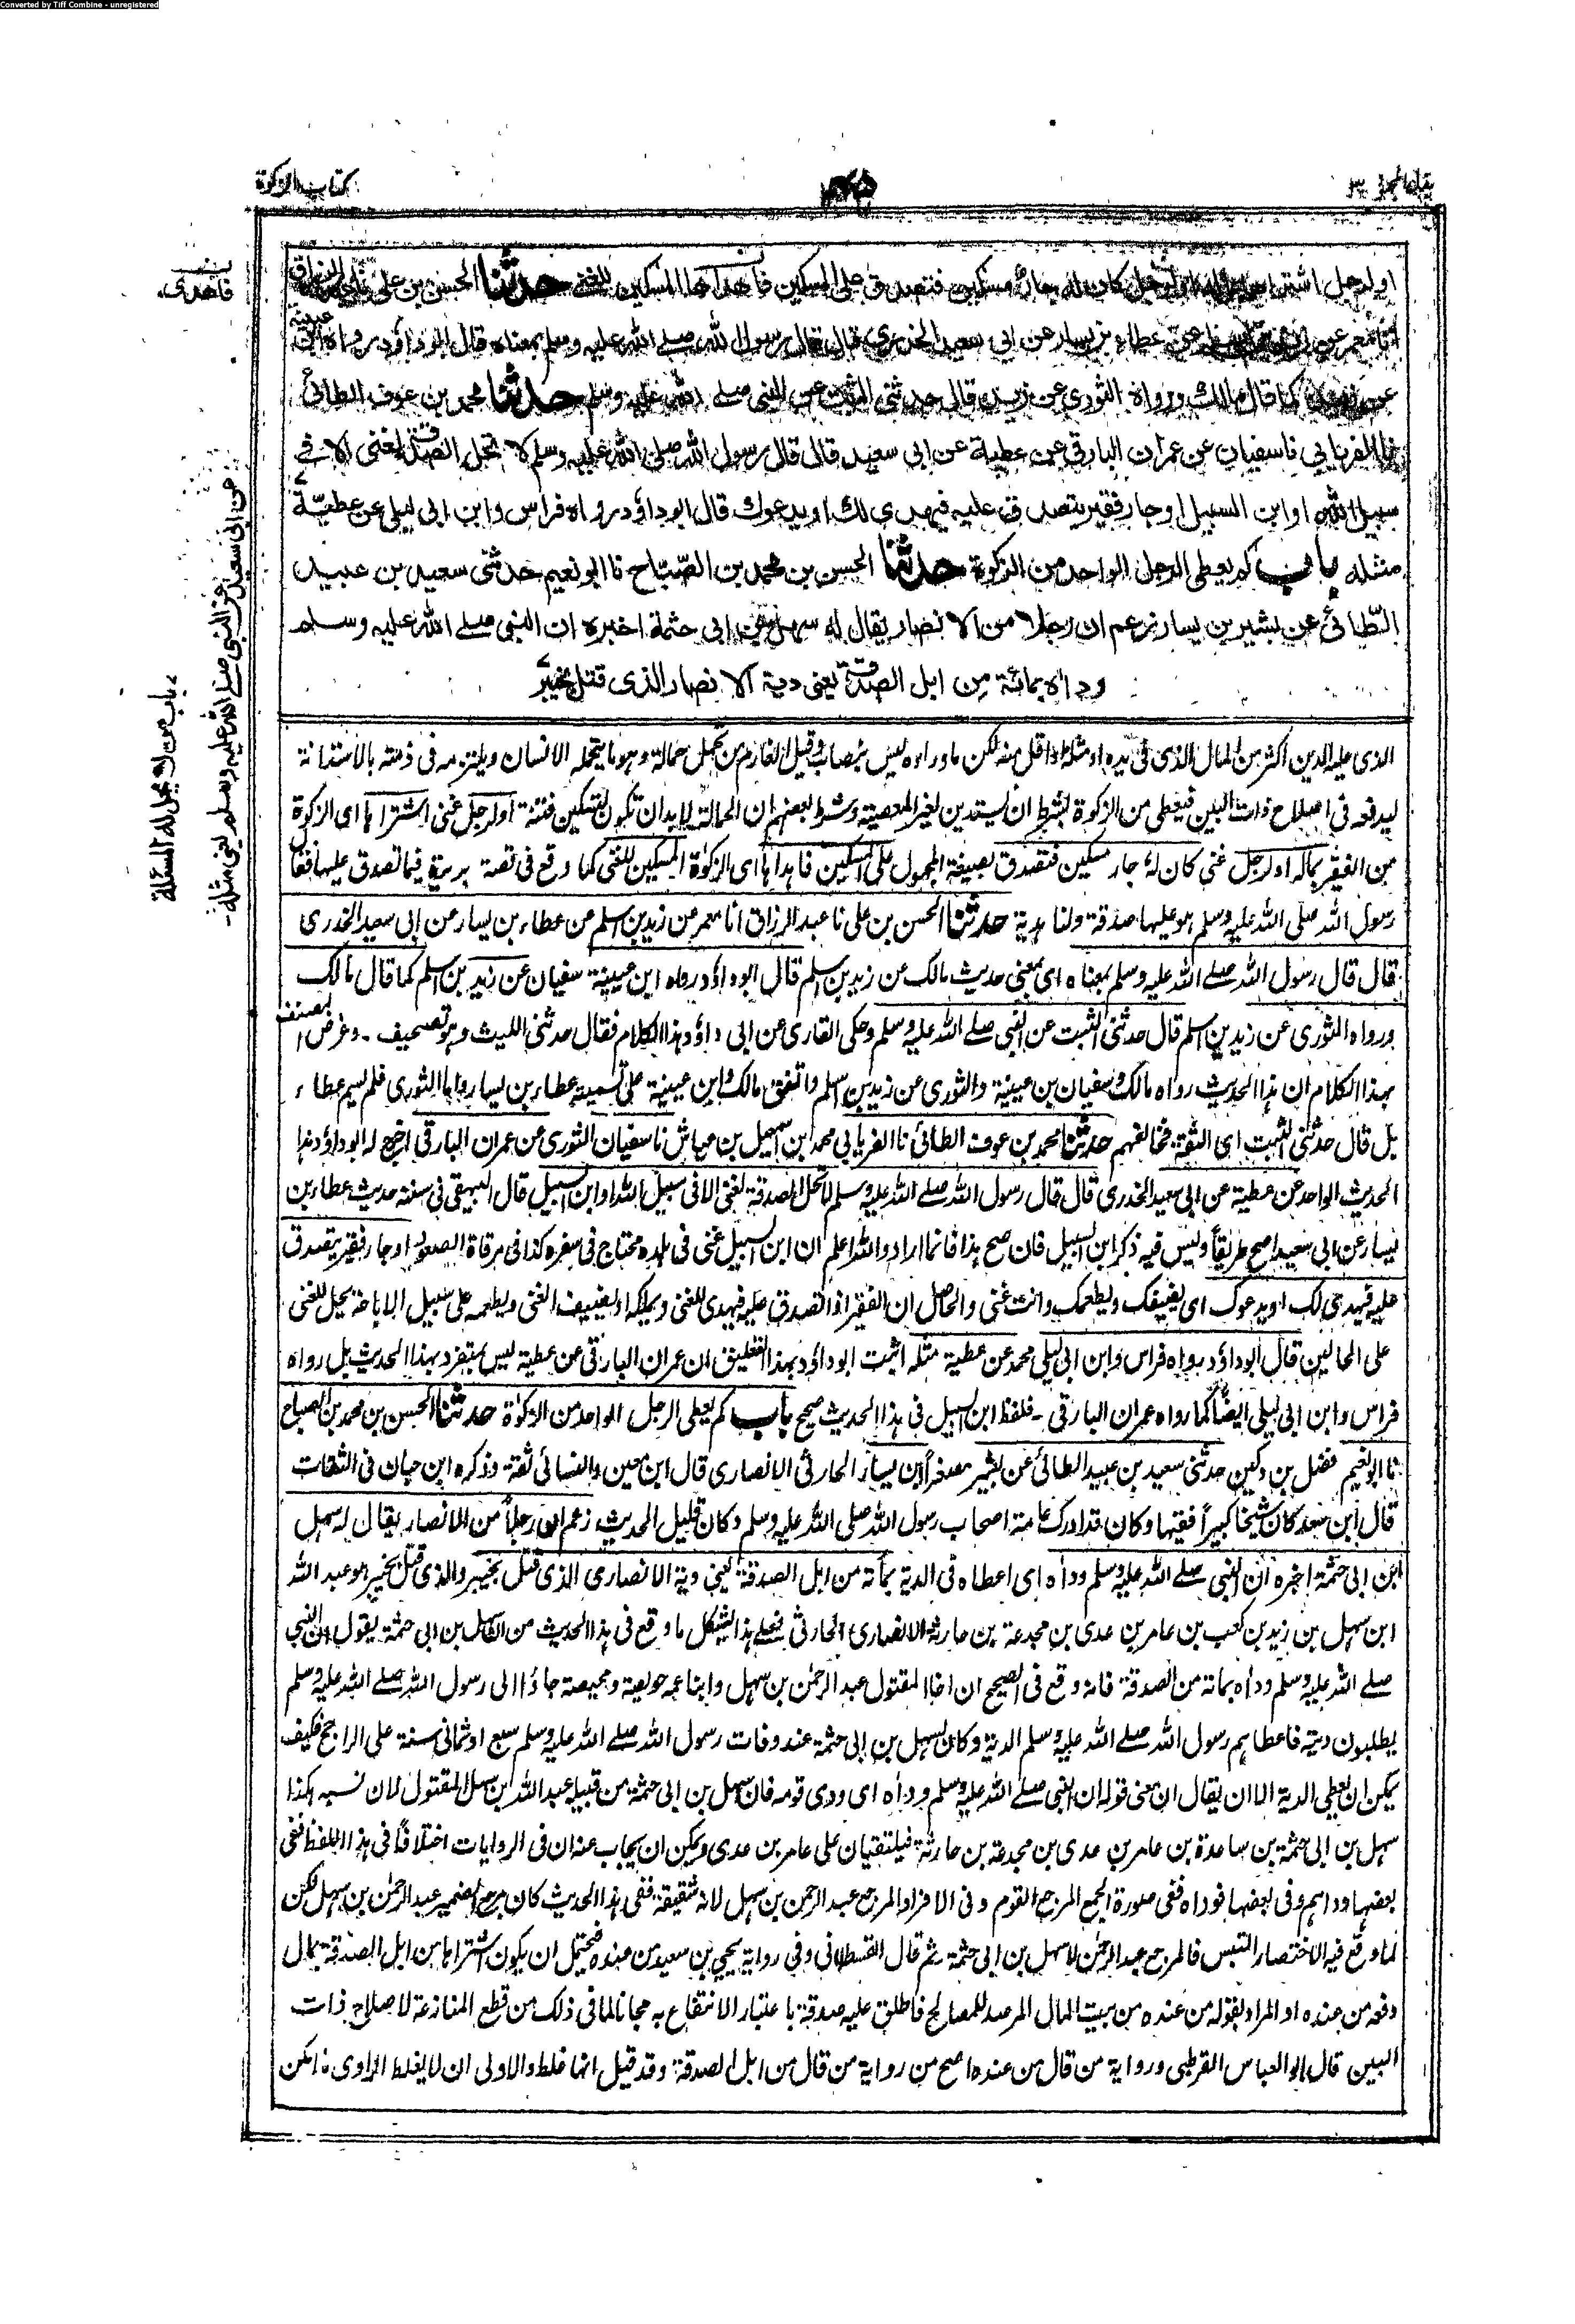 Converted by Tiff Combine - unregistered
بذل المجهود ٣
كتاب الزكوة
او لرجل اشتراها بماله او لرجل كان له جار مسكين فتصدق على المسكين فاهداها المسكين للغني حدثنا الحسن بن علي نا عبد الرزاق
انا معمر عن زيد بن اسلم عن عطاء بن يسار عن ابي سعيد الخدري قال قال رسول الله صلے الله عليه وسلم بمعناه قال ابو داؤد ورواه ابن عيينة
عن زيد كما قال مالك ورواه الثوري عن زيد قال حدثني الثبت عن النبي صلے الله عليه وسلم حدثنا محمد بن عوف الطائي
نا الفريابي نا سفيان عن عمران البارقي عن عطية عن ابي سعيد قال قال رسول الله صلى الله عليه وسلم لا تحل الصدقة لغني الا في
سبيل الله او ابن السبيل او جار فقير يتصدق عليه فيهدي لك او يدعوك قال ابو داؤد رواه فراس وابن ابي ليلى عن عطية
مثله باب كم يعطى الرجل الواحد من الزكوة حدثنا الحسن بن محمد بن الصباح نا ابو نعيم حدثني سعيد بن عبيد
الطائي عن بشير بن يسار زعم ان رجلا من الانصار يقال له سهل بن ابي حثمة اخبره ان النبي صلے الله عليه وسلم
وداه بمائة من ابل الصدقة يعني دية الانصار الذي قتل بخيبر
فاهدى
عن ابي سعيد عن النبي صلے الله عليه وسلم يعني مثله
باب من لا تحل له المسئلة
الذي عليه الدين اكثر من المال الذي في يده او مثله او اقل منه لكن ما وراءه ليس بنصاب وقيل الغارم من تحمل حمالة وهو ما يتحمله الانسان ويلتزمه في ذمته بالاستدانة
ليدفعه في اصلاح ذات البين فيعطى من الزكوة بشرط ان يستدين لغير المعصية وشرط بعضهم ان الحمالة لابد ان تكون لتسكين فتنة او لرجل غني اشتراها اى الزكوة
من الفقير بماله او لرجل غني كان له جار مسكين فتصدق بصيغة المجهول على المسكين فاهداها اى الزكوة المسكين للغني كما وقع في قصة بريرة فيما تصدق عليها فقال
رسول الله صلى الله عليه وسلم هو عليها صدقة ولنا هدية حدثنا الحسن بن علي نا عبد الرزاق انا معمر عن زيد بن اسلم عن عطاء بن يسار عن ابي سعيد الخدري
قال قال رسول الله صلے الله عليه وسلم بمعناه اى بمعنى حديث مالك عن زيد بن اسلم قال ابو داؤد رواه ابن عيينة سفيان عن زيد بن اسلم كما قال مالك
ورواه الثوري عن زيد بن اسلم قال حدثني الثبت عن النبي صلے الله عليه وسلم وحكى القاري عن ابي داؤد هذا الكلام فقال حدثني الليث وهو تصحيف - وغرض المصنف
بهذا الكلام ان هذا الحديث رواه مالك وسفيان بن عيينة والثوري عن زيد بن اسلم واتفق مالك وابن عيينة على تسمية عطاء بن يسار واما الثوري فلم يسم عطاء
بل قال حدثني الثبت اى الثقة فخالفهم حدثنا محمد بن عوف الطائي نا الفريابي محمد بن اسمعيل بن عياش نا سفيان الثوري عن عمران البارقي اخرج له ابو داؤد هذا
الحديث الواحد عن عطية عن ابي سعيد الخدري قال قال رسول الله صلے الله عليه وسلم لا تحل الصدقة لغني الا في سبيل الله او ابن السبيل قال البيهقي في سننه حديث عطاء بن
يسار عن ابي سعيد اصح طريقاً وليس فيه ذكر ابن السبيل فان صح هذا فانما اراد والله اعلم ان ابن السبيل غني في بلده محتاج في سفره كذا في مرقاة الصعود او جار فقير يتصدق
عليه فيهدي لك او يدعوك اى يضيفك ويطعمك وانت غني والحاصل ان الفقير اذا تصدق عليه فيهدى للغني ويملكه او يضيف الغني ويطعمه على سبيل الاباحة يحل للغني
على الحالين قال ابو داؤد رواه فراس وابن ابي ليلى محمد عن عطية مثله اثبت ابو داؤد بهذا التعليق ان عمران البارقي عن عطية ليس بمتفرد بهذا الحديث بل رواه
فراس وابن ابي ليلى ايضاً كما رواه عمران البارقي - فلفظ ابن السبيل في هذا الحديث صحيح باب كم يعطى الرجل الواحد من الزكوة حدثنا الحسن بن محمد بن الصباح
نا ابو نعيم فضل بن دكين حدثني سعيد بن عبيد الطائي عن بشير مصغراً ابن يسار الحارثي الانصاري قال ابن معين والنسائي ثقة وذكره ابن حبان في الثقات
قال ابن سعد كان شيخاً كبيراً فقيها وكان قد ادرك عامة اصحاب رسول الله صلى الله عليه وسلم وكان قليل الحديث زعم ان رجلاً من الانصار يقال له سهل
ابن ابي حثمة اخبره ان النبي صلے الله عليه وسلم وداه اى اعطاه في الدية بمائة من ابل الصدقة يعني دية الانصاري الذي قتل بخيبر والذي قتل بخيبر هو عبد الله
ابن سهل بن زيد بن كعب بن عامر بن عدي بن مجدعة بن حارثة الانصاري الحارثي فعلى هذا يشكل ما وقع في هذا الحديث من ان سهل بن ابي حثمة يقول ان النبي
صلے الله عليه وسلم وداه بمائة من الصدقة فانه وقع في الصحيح ان اخا المقتول عبد الرحمن بن سهل وابنا عمه حويصة ومحيصة جاؤا الى رسول الله صلے الله عليه وسلم
يطلبون دية فاعطاهم رسول الله صلے الله عليه وسلم الدية وكان لسهل بن ابي حثمة عند وفات رسول الله صلے الله عليه وسلم سبع او ثماني سنة على الراجح فكيف
يمكن ان يعطى الدية الا ان يقال ان معنى قوله ان النبي صلے الله عليه وسلم وداه اى ودى قومه فان سهل بن ابي حثمة من قبيلة عبد الله بن سهل المقتول لان نسبه هكذا
سهل بن ابي حثمة بن ساعدة بن عامر بن عدي بن مجدعة بن حارثة فيلتقيان على عامر بن عدي ويمكن ان يجاب عنه ان في الروايات اختلافاً في هذا اللفظ ففي
بعضها وداهم وفي بعضها فوداه ففي صورة الجمع المرجع القوم وفي الافراد المرجع عبد الرحمن بن سهل لانه شقيقه ففي هذا الحديث كان مرجع الضمير عبد الرحمن بن سهل لكن
لما وقع فيه الاختصار التبس فالمرجع عبد الرحمن لا سهل بن ابي حثمة ثم قال القسطلاني وفي رواية يحيى بن سعيد من عنده فيحتمل ان يكون اشتراها من ابل الصدقة بمال
دفعه من عنده او المراد بقوله من عنده من بيت المال المرصد للمصالح فاطلق عليه صدقة باعتبار الانتفاع به مجانا لما في ذلك من قطع المنازعة لاصلاح ذات
البين قال ابو العباس القرطبي ورواية من قال من عنده اصح من رواية من قال من ابل الصدقة وقد قيل انها غلط والاولى ان لا يغلط الراوي ما امكن